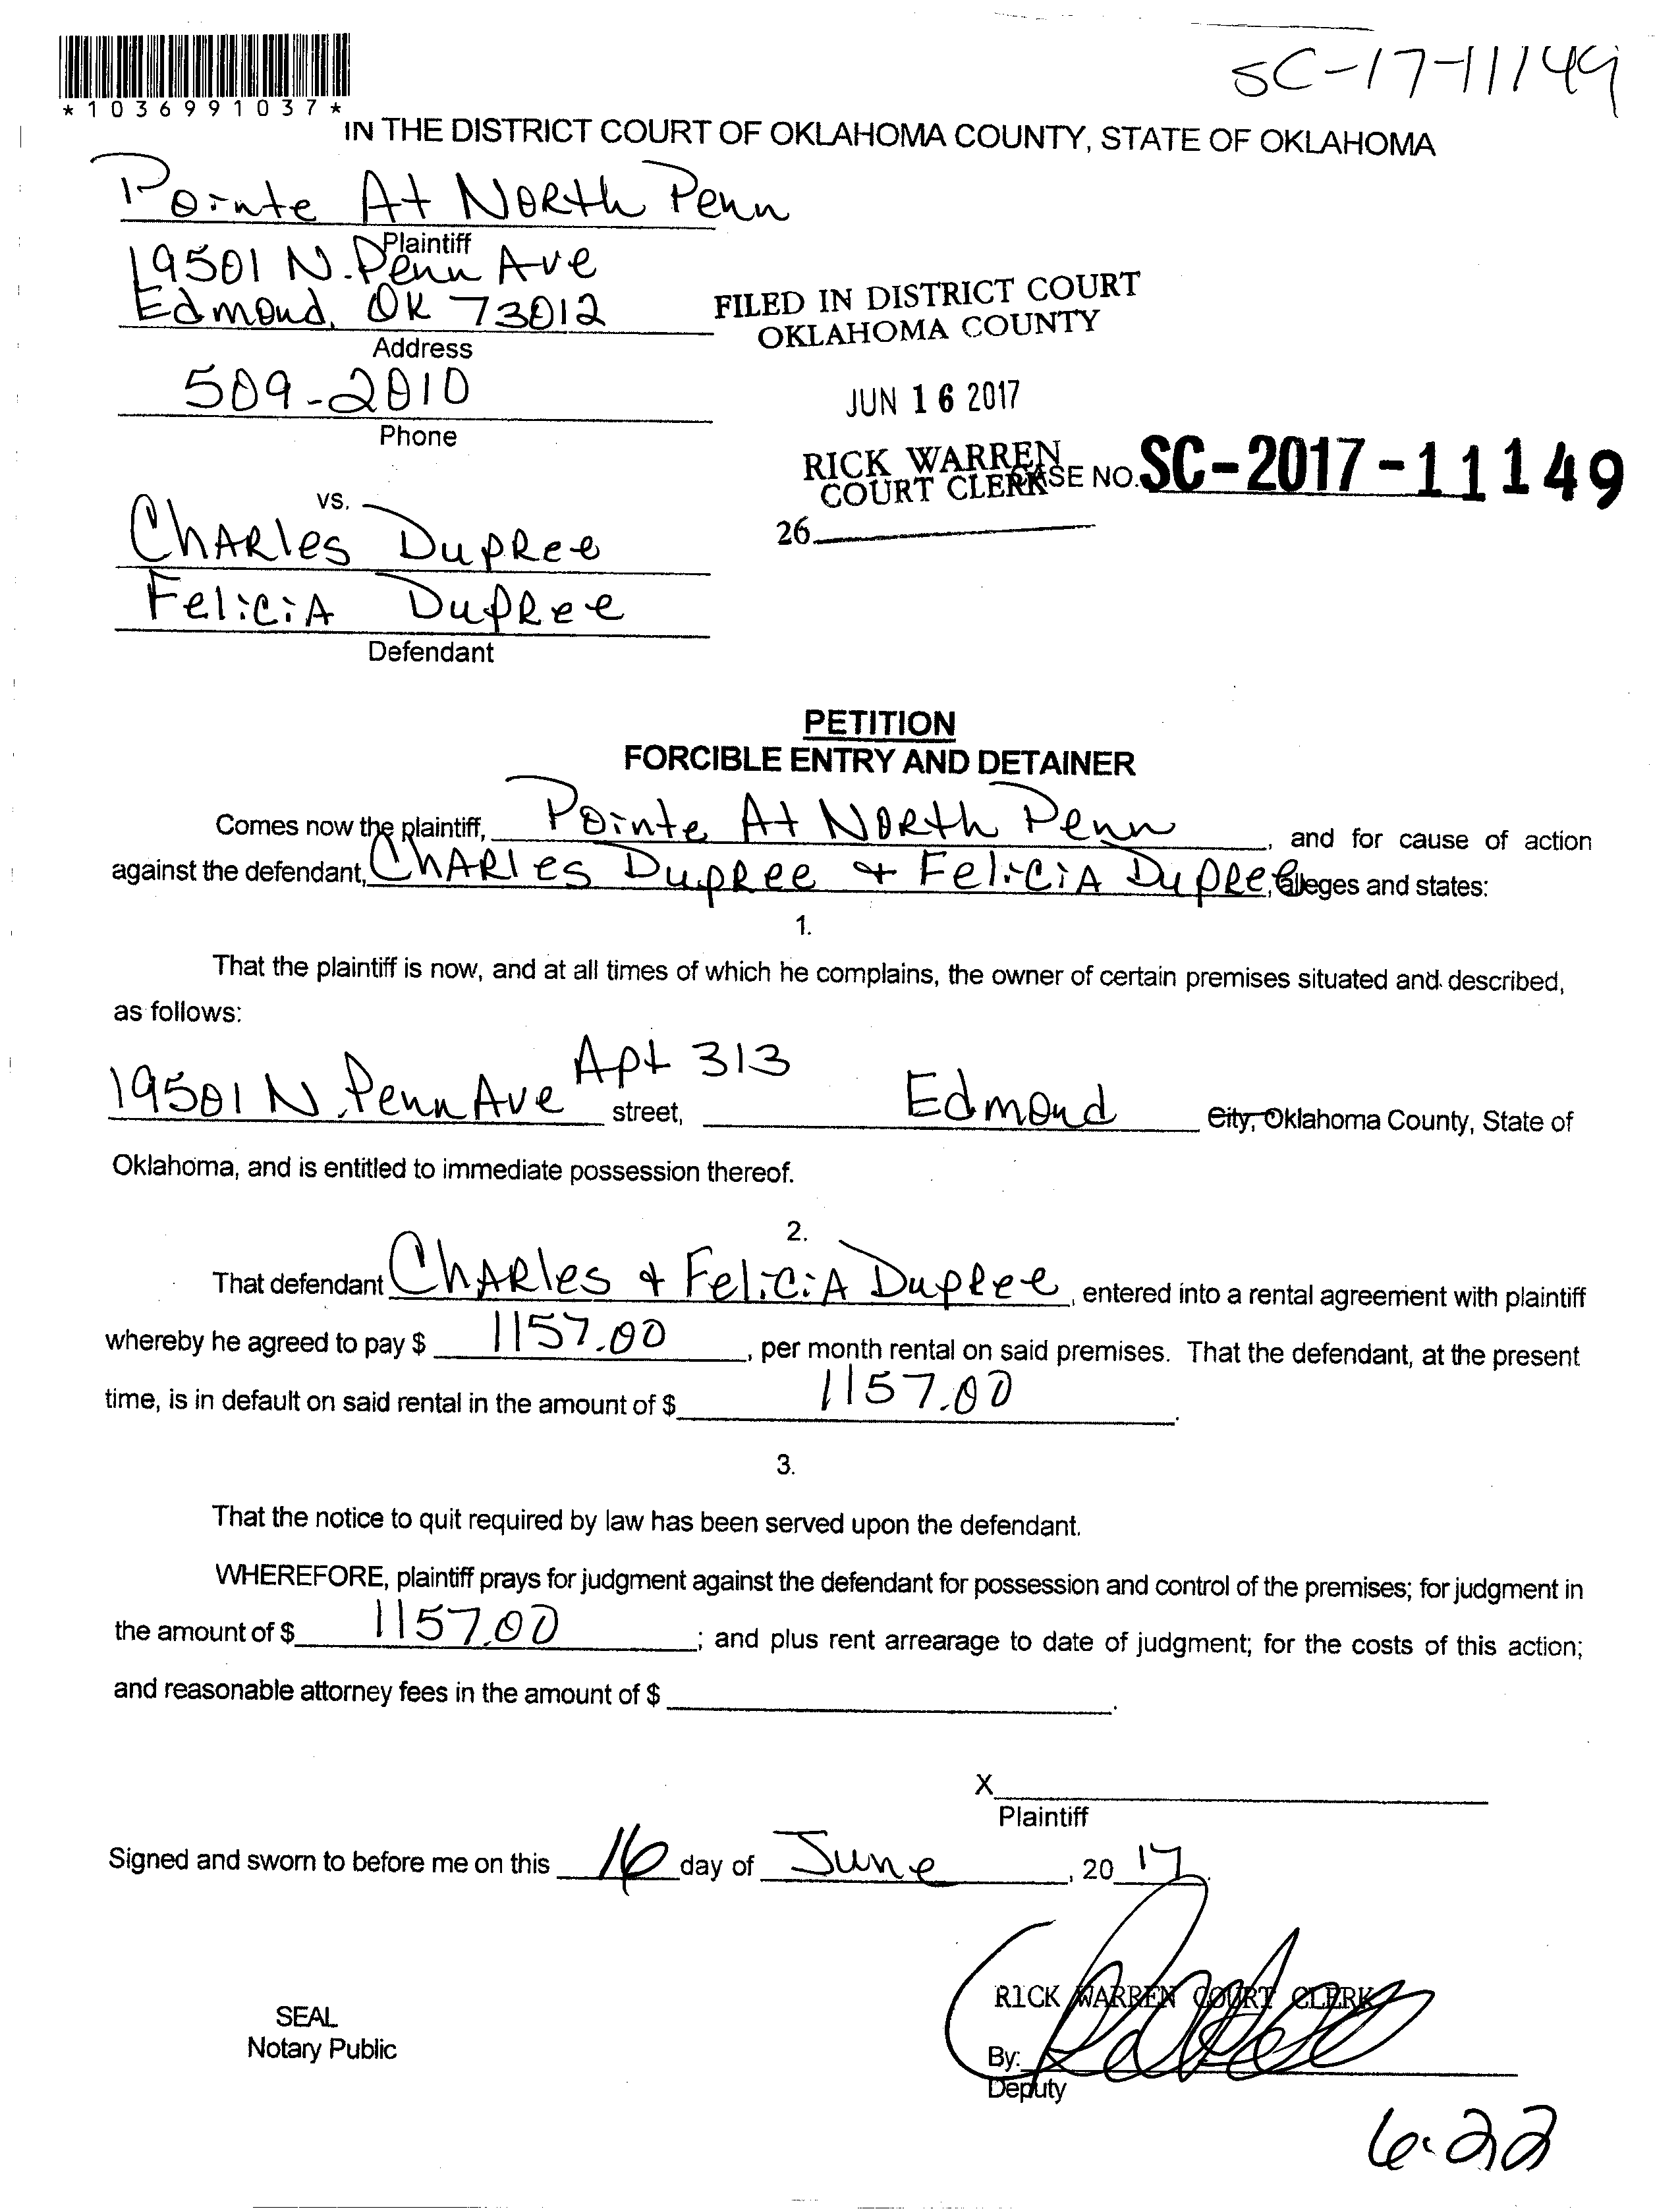 SC-17-11149
*1036991037*
IN THE DISTRICT COURT OF OKLAHOMA COUNTY, STATE OF OKLAHOMA
Pointe At North Penn
Plaintiff
19501 N. Penn Ave
Edmond, OK 73012
Address
509-2010
Phone
FILED IN DISTRICT COURT
OKLAHOMA COUNTY
JUN 16 2017
RICK WARREN
COURT CLERK
26
CASE NO. SC-2017-11149
vs.
Charles Dupree
Felicia Dupree
Defendant
PETITION
FORCIBLE ENTRY AND DETAINER
Comes now the plaintiff, Pointe At North Penn, and for cause of action
against the defendant, Charles Dupree & Felicia Dupree, alleges and states:
1.
That the plaintiff is now, and at all times of which he complains, the owner of certain premises situated and described,
as follows:
19501 N. Penn Ave Apt 313 street, Edmond City, Oklahoma County, State of
Oklahoma, and is entitled to immediate possession thereof.
2.
That defendant Charles & Felicia Dupree, entered into a rental agreement with plaintiff
whereby he agreed to pay $ 1157.00, per month rental on said premises. That the defendant, at the present
time, is in default on said rental in the amount of $ 1157.00.
3.
That the notice to quit required by law has been served upon the defendant.
WHEREFORE, plaintiff prays for judgment against the defendant for possession and control of the premises; for judgment in
the amount of $ 1157.00; and plus rent arrearage to date of judgment; for the costs of this action;
and reasonable attorney fees in the amount of $ .
X
Plaintiff
Signed and sworn to before me on this 16 day of June, 20 17.
RICK WARREN COURT CLERK
SEAL
Notary Public
By:
Deputy
6-22